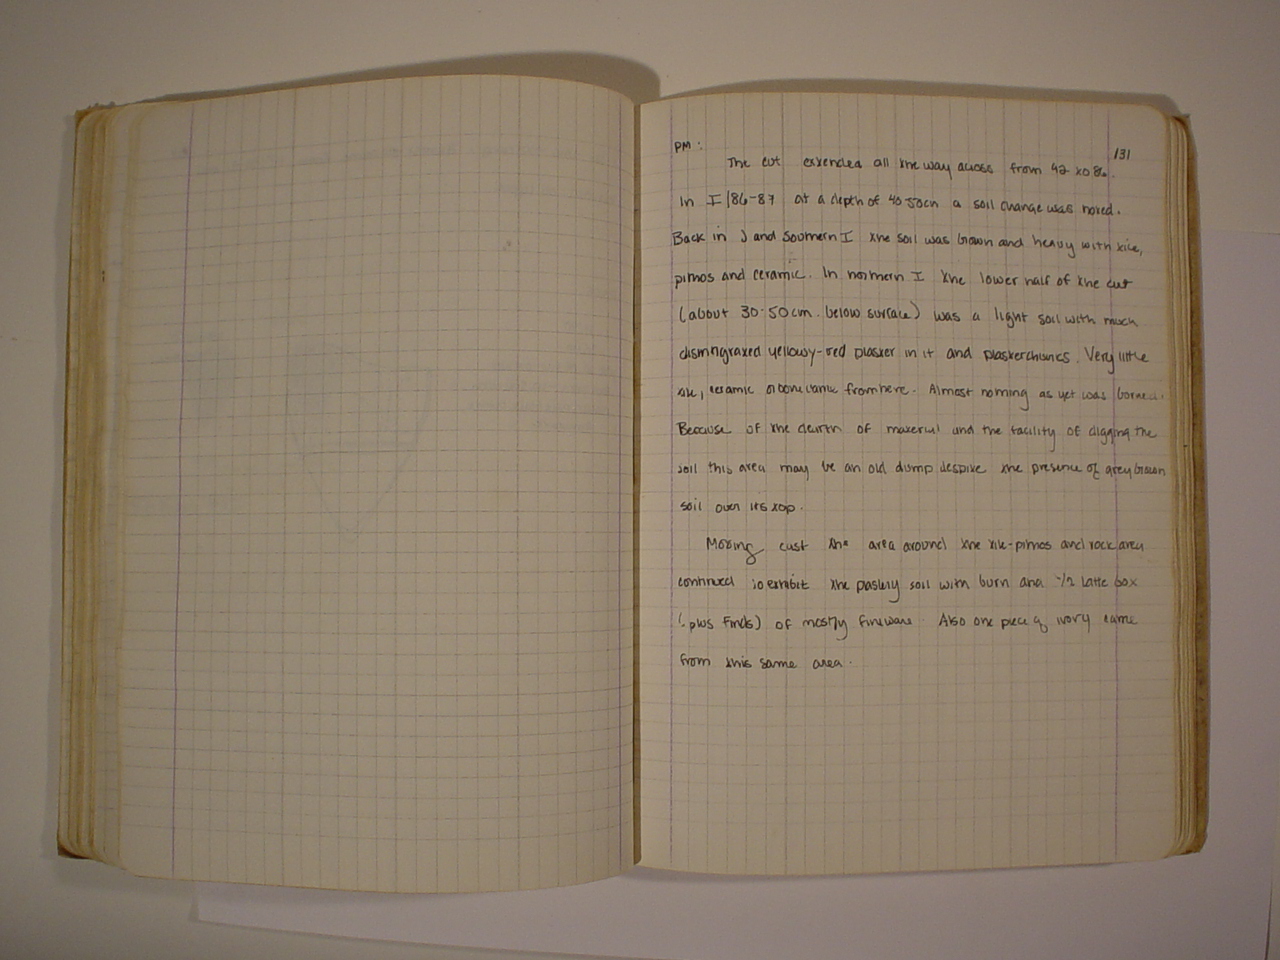 131
PM:
The cut extended all the way across from 42 to 86.
In I/86-87 at a depth of 40-50cm a soil change was noted.
Back in J and Southern I the soil was brown and heavy with tile,
pithos and ceramic. In northern I the lower half of the cut
(about 30-50cm. below surface) was a light soil with much
disintigrated yellowy-red plaster in it and plaster chunks. Very little
tile, ceramic or bone came from here. Almost nothing as yet was burned.
Because of the dearth of material and the facility of digging the
soil this area may be an old dump despite the presence of grey brown
soil over its top.
Moving east the area around the tile-pithos and rock area
continued to exhibit the soil with burn and ~1/2 latte box
(plus finds) of mostly fineware. Also one piece of ivory came
from this same area.